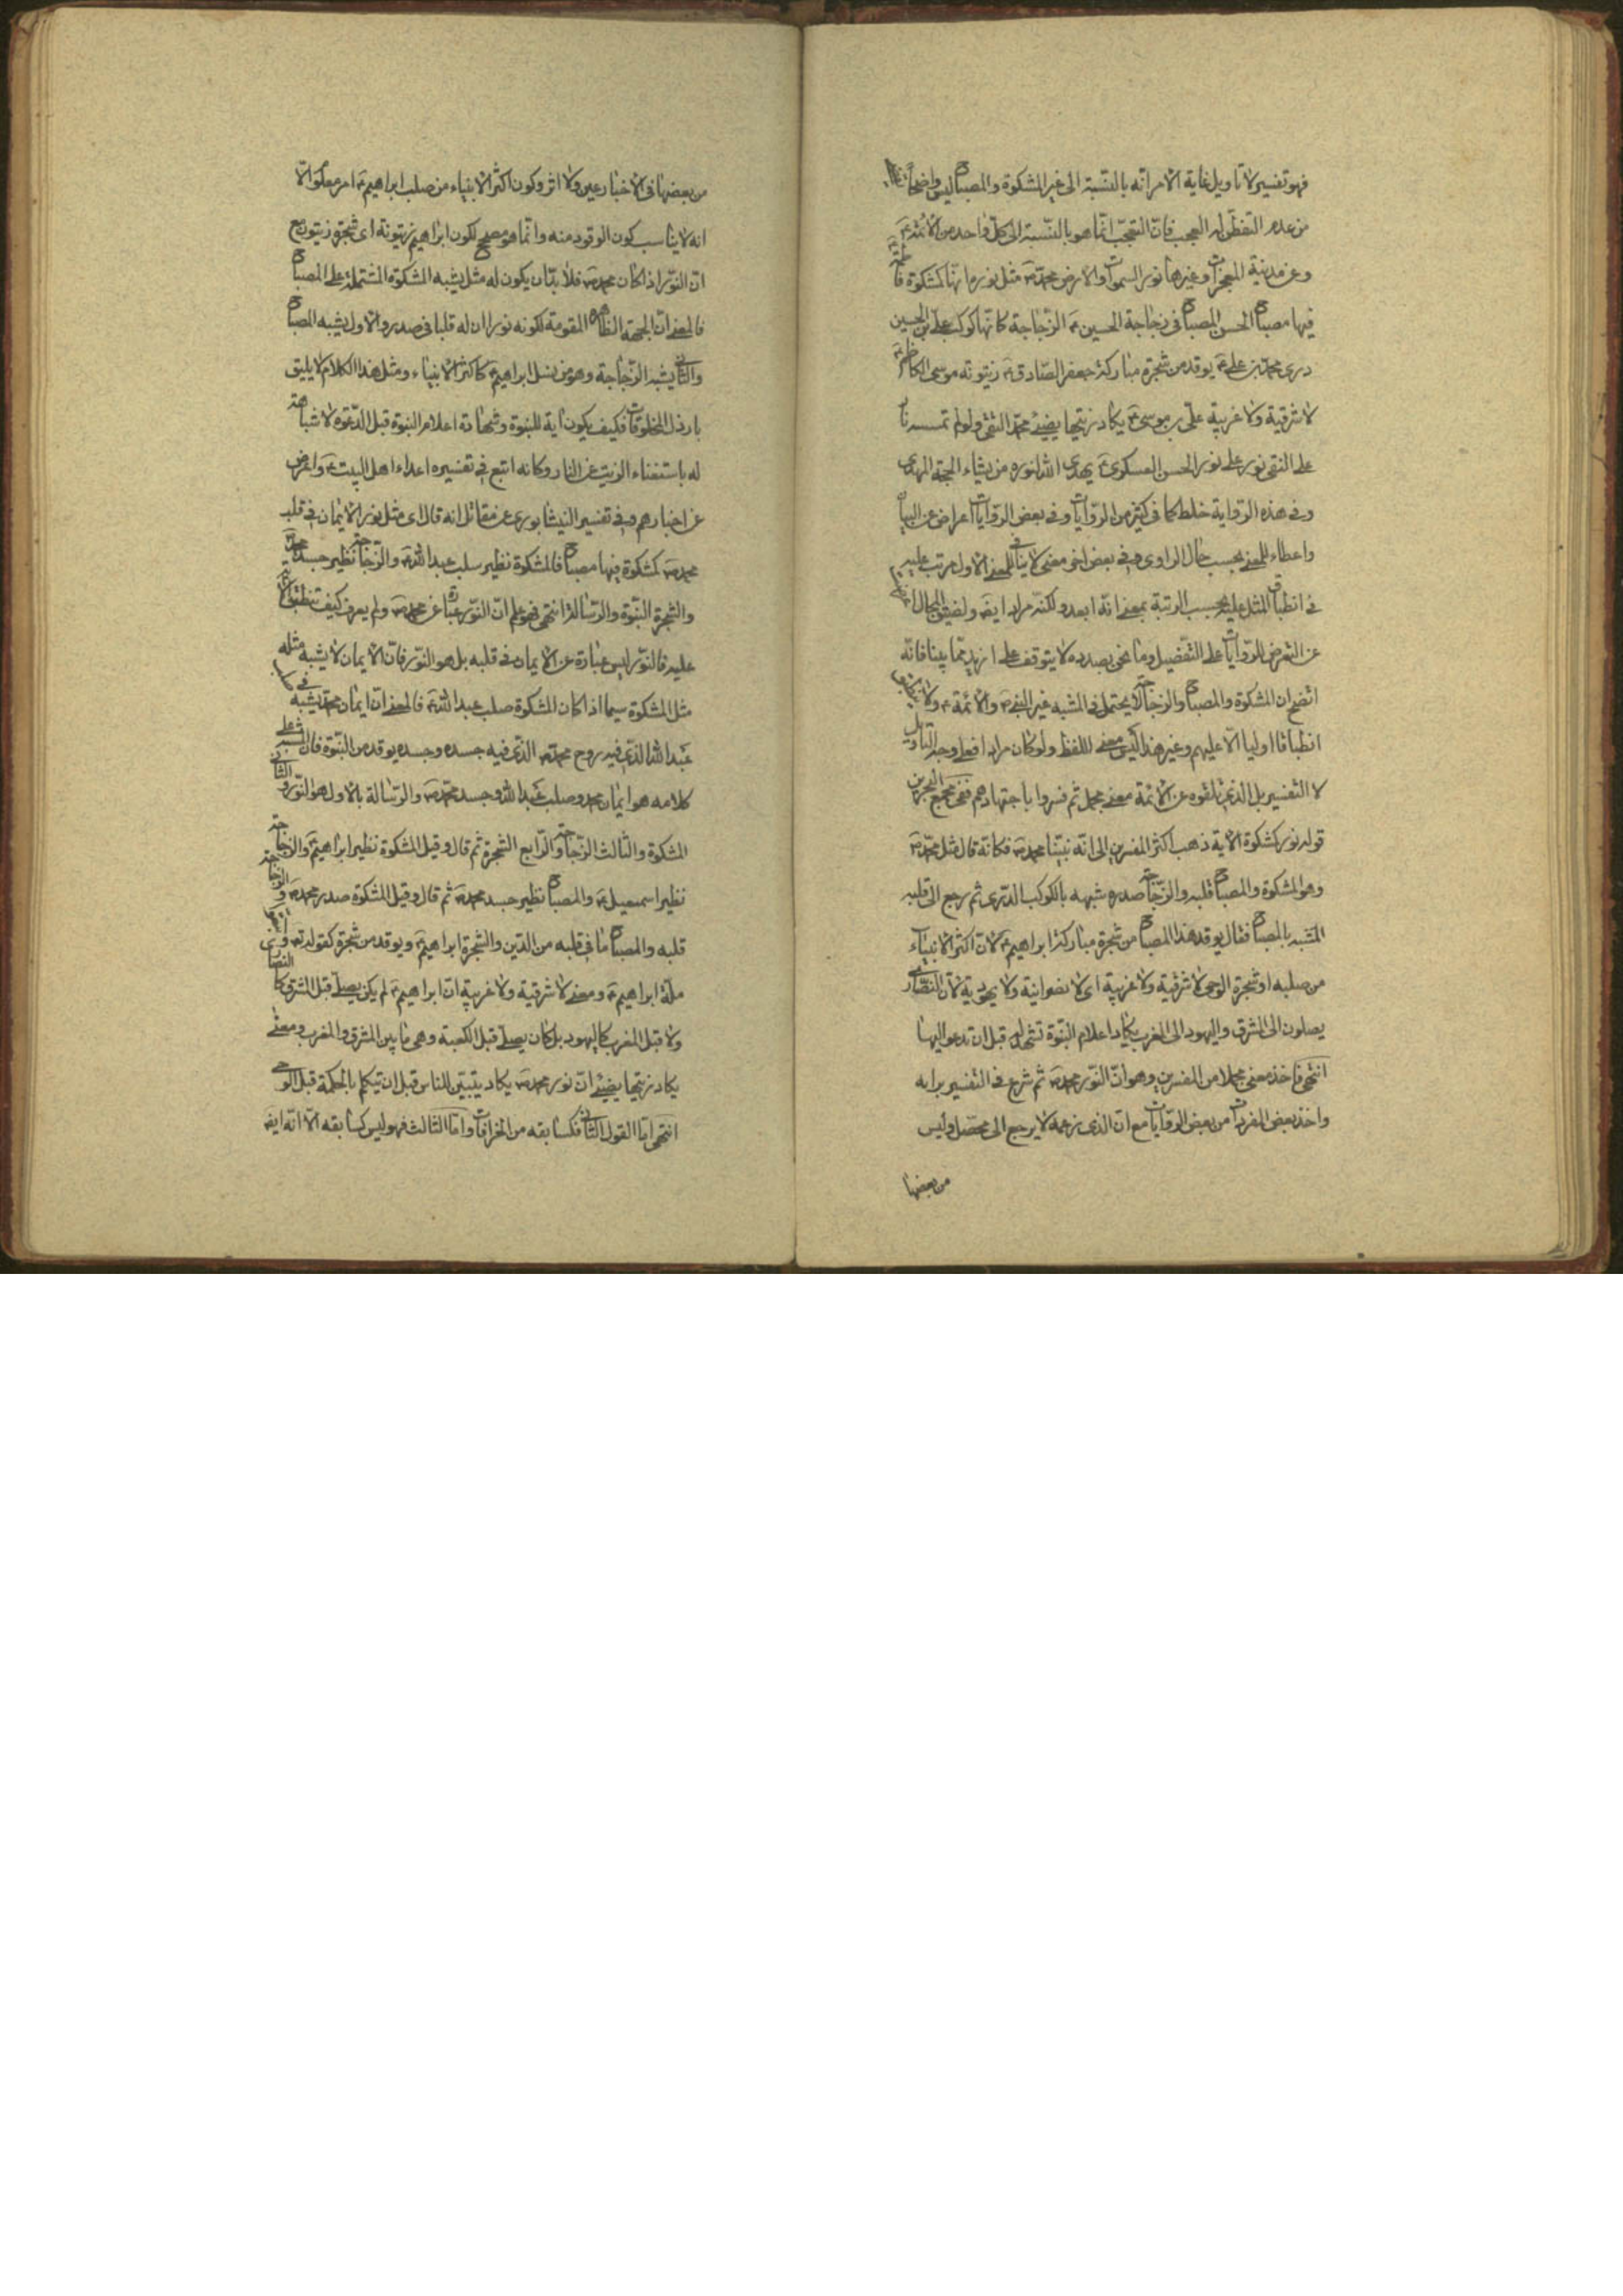 فهو تفسير لا تاويل غاية الامر انه بالنسبة الى غير المشكوة والمصباح ليس واضحا
من عدم التفطن له العجب فان التعجب انما هو بالنسبة الى كل واحد من الائمة ع
وعن مدينة المعجزات وغيرها نور السموات والارض محمد ص مثل نوره انها كمشكوة فاطمة ع
فيها مصباح الحسن المصباح في زجاجة الحسين ع الزجاجة كانها كوكب علي بن الحسين
دري محمد بن علي ع يوقد من شجرة مباركة جعفر الصادق ع زيتونة موسى الكاظم ع
لا شرقية ولا غربية علي بن موسى ع يكاد زيتها يضيئ محمد التقي ولو لم تمسسه نار
علي النقي نور على نور الحسن العسكري ع يهدي الله لنوره من يشاء الحجة المهدي
وفي هذه الرواية خلط كما في كثير من الروايات وفي بعض الروايات اعراض عن البيان
واعطاء للمعنى بحسب حال الراوي وفي بعض اخر معنى لا ينافي للمعنى الاول مرتب عليه
في انطباق المثل عليه بحسب الرتبة بمعنى انه ابعد ولكنه مراد ايض ولضيق المجال
عن التعرض للروايات على التفصيل وما نحن بصدده لا يتوقف على ازيد مما بينا فانه
اتضح ان المشكوة والمصباح والزجاجة لا يحتمل في المشبه غير النبي ص والائمة ع ولا
انطباقا اوليا الا عليهم وغير هذا ليس معنى للفظ ولو كان مرادا فعلى وجه التاويل
لا التفسير بل الذي تلقوه عن الائمة معنى مجمل ثم فسروا باجتهادهم ففي مجمع البحرين
قوله نوره كمشكوة الاية ذهب اكثر المفسرين الى انه نبينا محمد ص فكانه قال مثل محمد ص
وهو المشكوة والمصباح قلبه والزجاجة صدره شبهه بالكوكب الدري ثم رجع الى قلبه
المشبه بالمصباح فقال يوقد هذا المصباح من شجرة مباركة ابراهيم ع لان اكثر الانبياء
من صلبه او شجرة الوحي لا شرقية ولا غربية اي لا نصرانية ولا يهودية لان النصارى
يصلون الى المشرق واليهود الى المغرب يكاد اعلام النبوة تشهد له قبل ان تدعو اليها
انتهى فاخذ معنى مجملا من المفسرين وهو ان النور محمد ص ثم شرع في التفسير برايه
واخذ بعض المفردات من بعض الروايات مع ان الذي زعمه لا يرجع الى محصل وليس
من بعضها
من بعضها في الاخبار عين ولا اثر وكون اكثر الانبياء من صلب ابراهيم ع امر معلوم الا
انه لا يناسب كون الوقود منه وانما هو مصحح لكون ابراهيم زيتونة اي شجرة زيتون مع
ان النور اذا كان محمد ص فلا بد ان يكون له مثل يشبه المشكوة المشتملة على المصباح
فالمعنى ان الجهة الظاهرة المقومة لكونه نورا ان له قلبا في صدره والاول يشبه المصباح
والثاني يشبه الزجاجة وهو من نسل ابراهيم ع كاكثر الانبياء ومثل هذا الكلام لا يليق
بارذل المخلوقات فكيف يكون اية للنبوة وشهادة اعلام النبوة قبل الدعوة لا شباهة
له باستغناء الزيت عن النار وكانه اتبع في تفسيره اعداء اهل البيت ع واعرض
عن اخبارهم وفي تفسير النيشابوري عن مقاتل انه قال اي مثل نور الايمان في قلب
محمد ص كمشكوة فيها مصباح فالمشكوة نظير صلب عبد الله ع والزجاجة نظير جسد محمد
والشجرة النبوة والرسالة انتهى فهو علم ان النور عبارة عن محمد ص ولم يعرف كيف تنطبق الاية
عليه فالنور ليس عبارة عن الايمان في قلبه بل هو النور فان الايمان لا يشبه مثله
مثل المشكوة سيما اذا كان المشكوة صلب عبد الله ع فالمعنى ان ايمان محمد يشبه في
عبد الله الذي فيه روح محمد ص الذي فيه جسده وجسده يوقد من النبوة فان المشبه على
كلامه هو ايمان محمد وصلب عبد الله وجسد محمد ص والرسالة بالاول هو النور والثاني
المشكوة والثالث الزجاجة والرابع الشجرة ثم قال وقيل المشكوة نظير ابراهيم ع والزجاجة
نظير اسمعيل ع والمصباح نظير جسد محمد ص ثم قال وقيل المشكوة صدر محمد ص والزجاجة
قلبه والمصباح ما في قلبه من الدين والشجرة ابراهيم ع ويوقد من شجرة كقوله تع
ملة ابراهيم ع ومعنى لا شرقية ولا غربية ان ابراهيم ع لم يكن يصلي قبل المشرق كالنصارى
ولا قبل المغرب كاليهود بل كان يصلي قبل الكعبة وهي ما بين المشرق والمغرب ومعنى
يكاد زيتها يضيئ ان نور محمد ص يكاد يتبين للناس قبل ان يتكلم بالحكمة قبل الوحي
انتهى اما القول الثاني فكسابقه من الخرافات واما الثالث فهو ليس كسابقه الا انه ايض